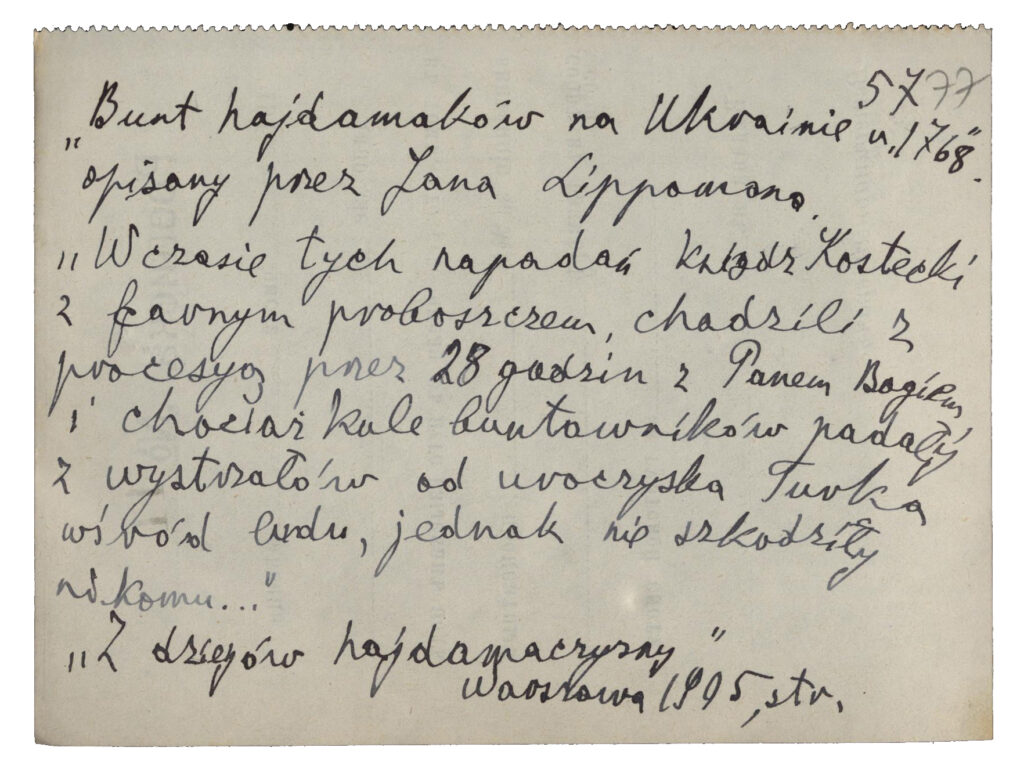 57 77
„Bunt hajdamaków na Ukrainie w „1768”.
opisany przez Jana Lippomana.
„W czasie tych napadań ksiądz Kostecki
z farnym proboszczem, chodzili z
procesyą przez 28 godzin z Panem Bogiem,
i chociaż kule buntowników padały
z wystrzałów od uroczyska Turka
wśród ludu, jednak nie szkodziły
nikomu..."
„Z dziejów hajdamaczyzny”
Warszawa 1905, str.